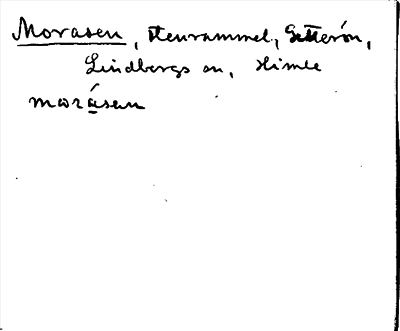 Morasen, stenrammel, Getterön,
Lindbergs sn, Himle
morásen